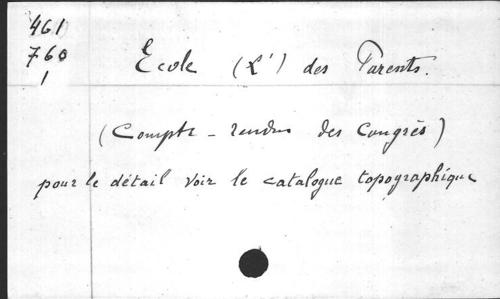 461
760
1
Ecole (L') des Parents.
(Compte-rendus des Congrès)
pour le détail voir le catalogue topographique